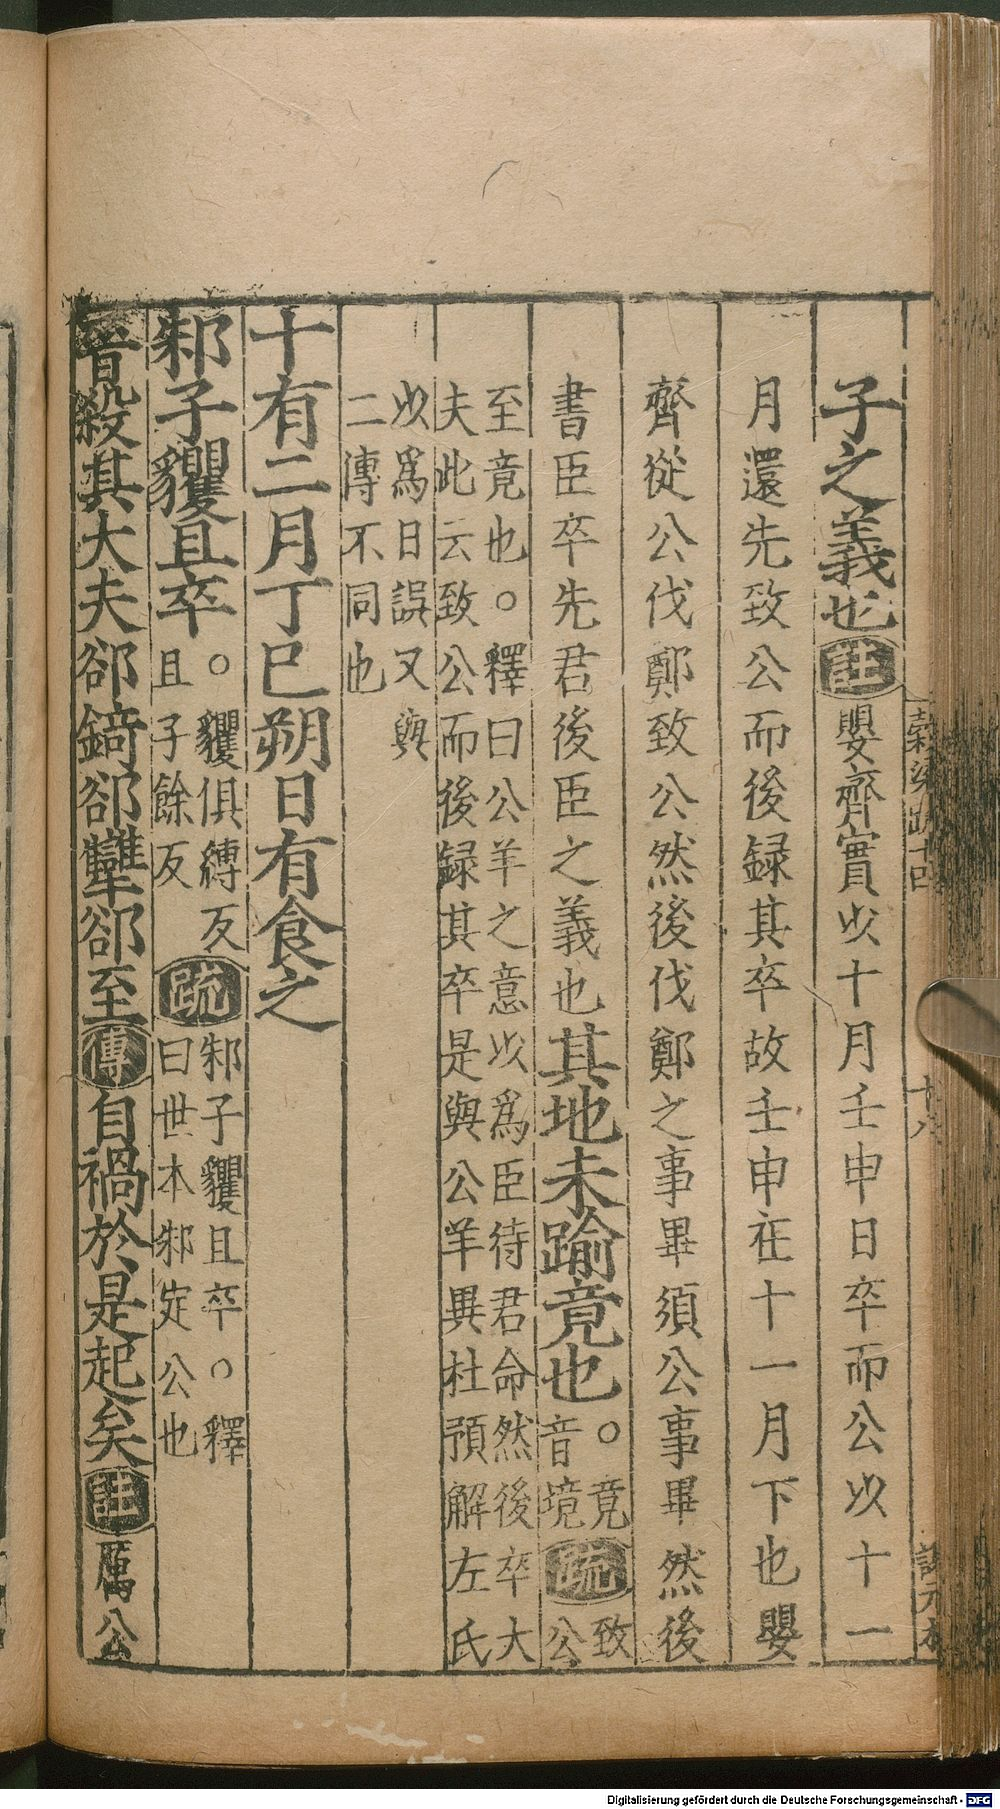 子之義也註嬰齊實以十月壬申日卒而公以十一
月還先致公而後録其卒故壬申在十一月下也嬰
齊從公伐鄭致公然後伐鄭之事畢須公事畢然後
書臣卒先君後臣之義也其地未踰竟也。竟音境疏致公
至竟也。釋曰公羊之意以爲臣待君命然後卒大
夫此云致公而後録其卒是與公羊異杜預解左氏
以爲日誤又與
二傳不同也
十有二月丁巳朔日有食之
邾子貜且卒。貜俱縛反且子餘反疏邾子貜且卒。釋曰世本邾定公也
晉殺其大夫郤錡郤犨郤至傳自禍於是起矣註厲公
十八
Digitalisierung gefördert durch die Deutsche Forschungsgemeinschaft - DFG